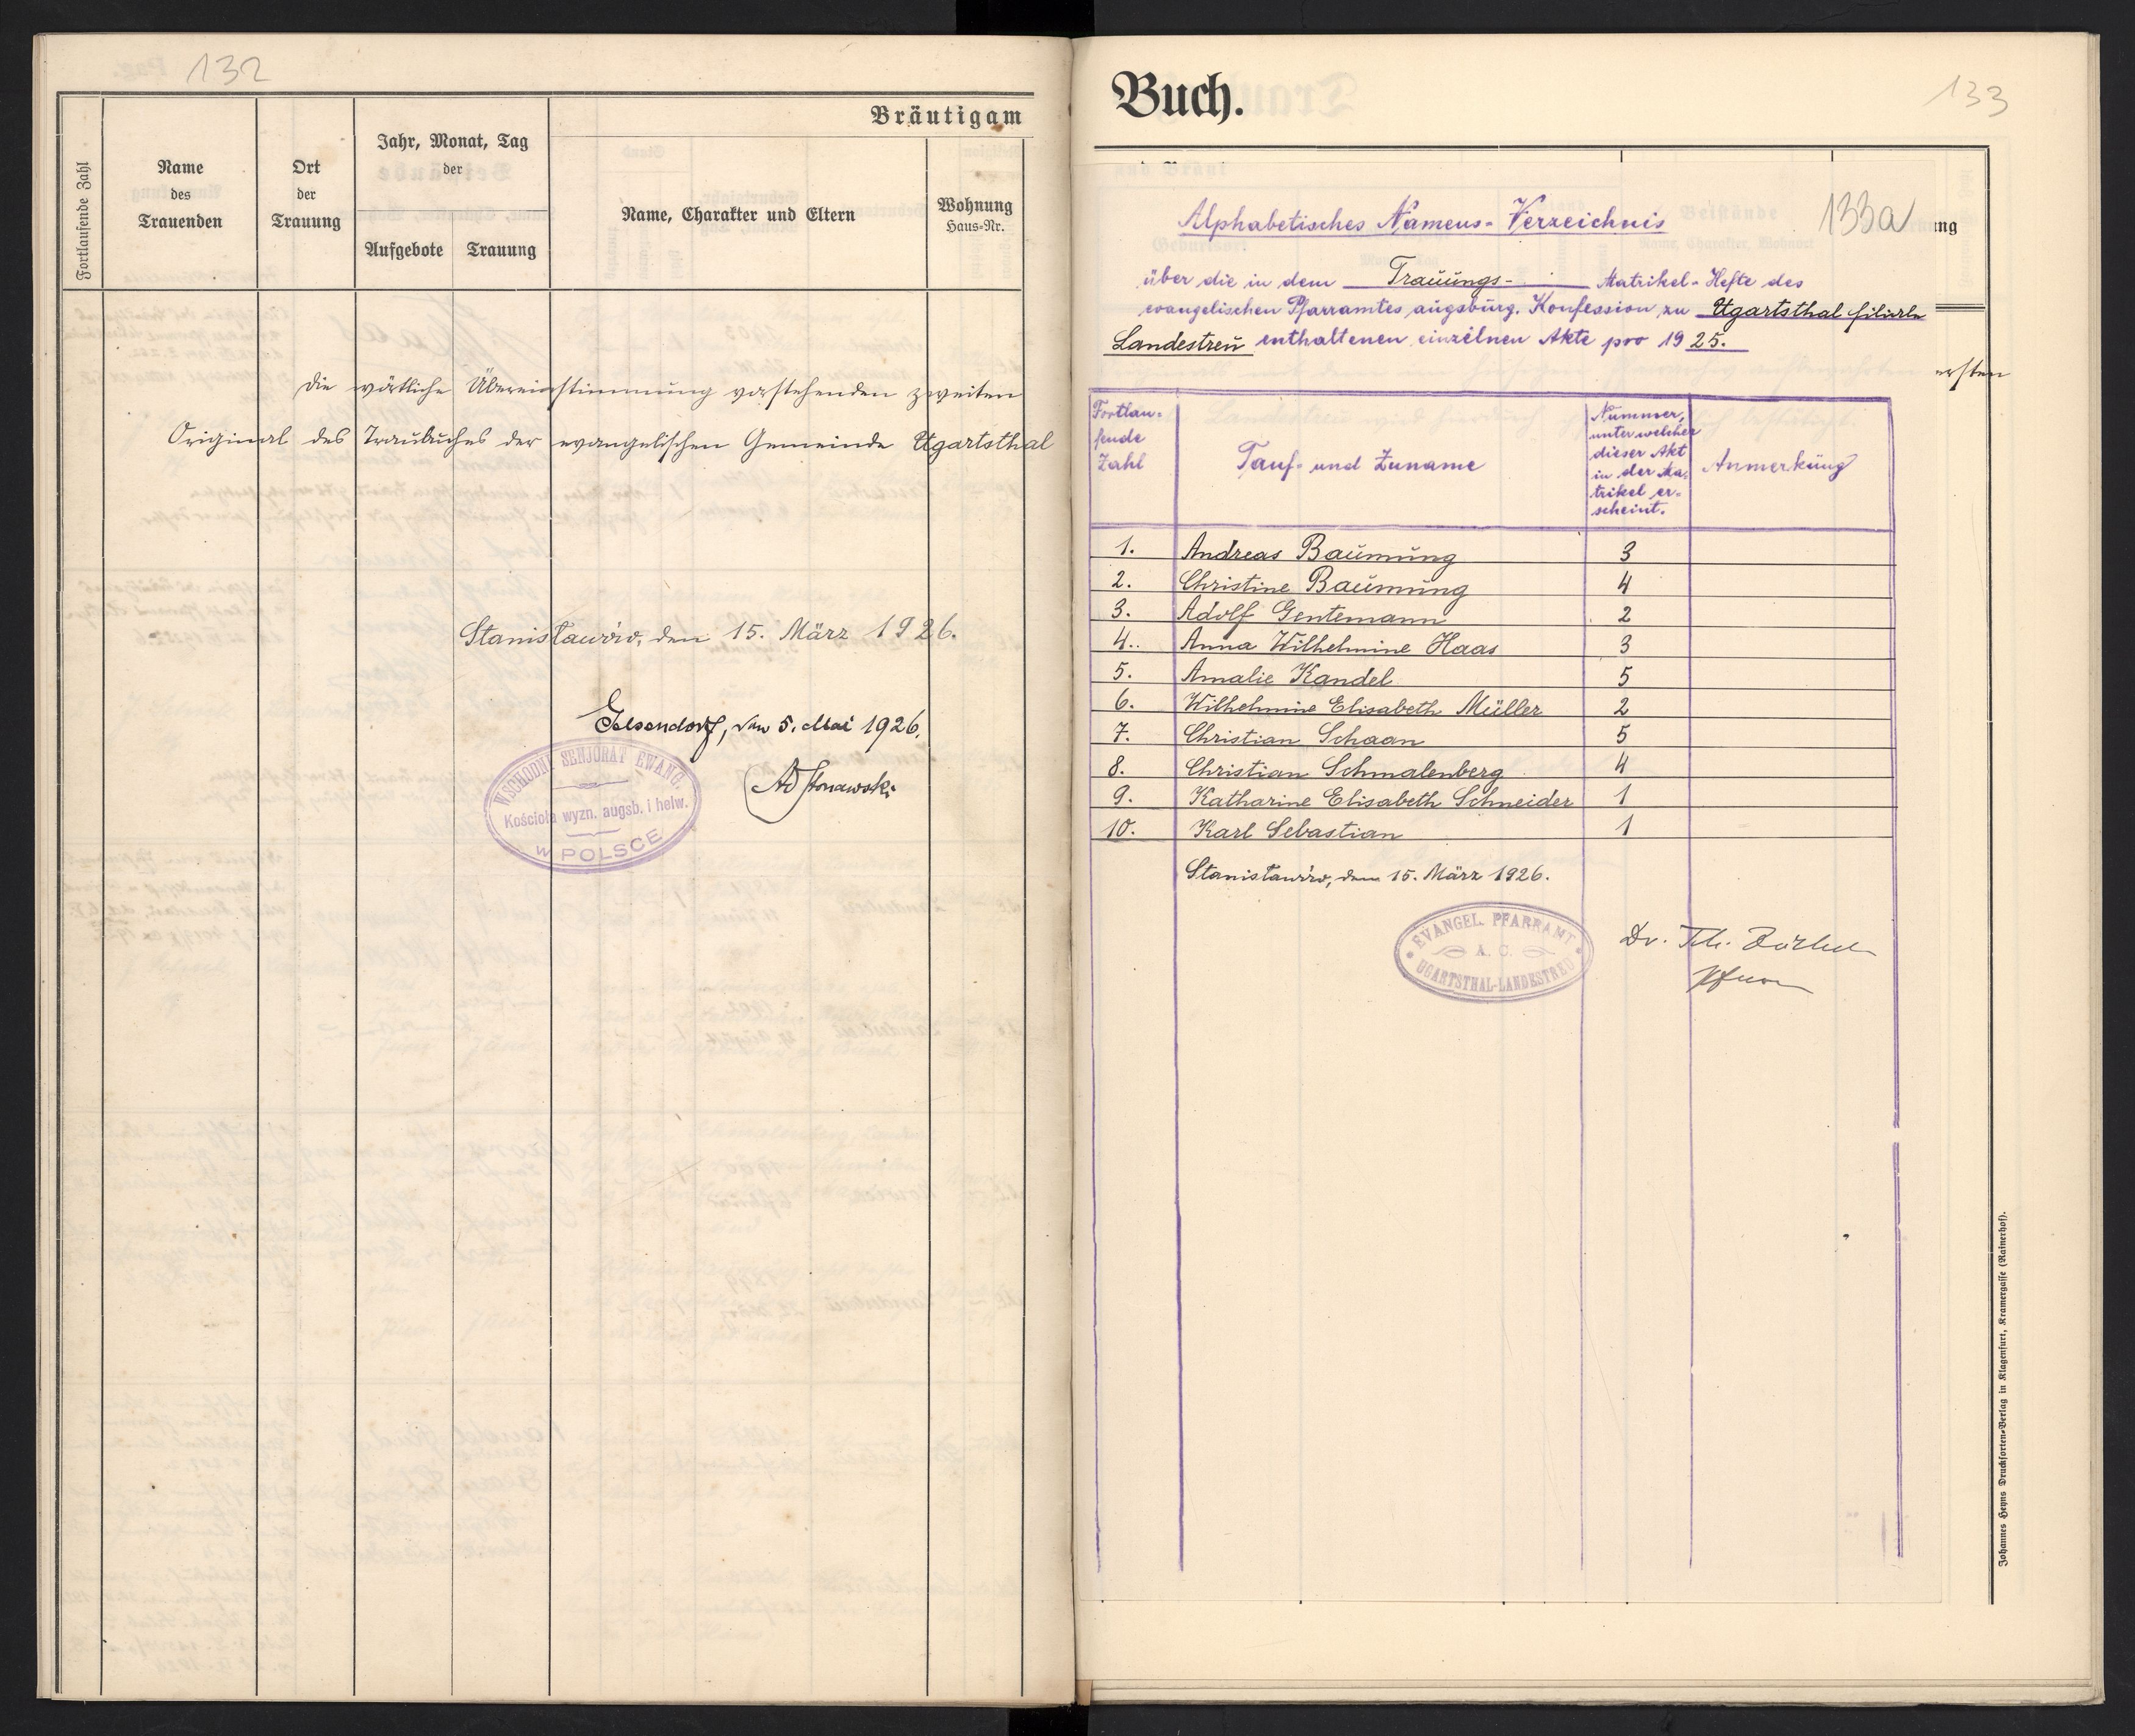 132
Bräutigam
Fortlaufende Zahl
Name
des
Trauenden
Ort
der
Trauung
Jahr, Monat, Tag
der
Aufgebote
Trauung
Name, Charakter und Eltern
Wohnung
Haus-Nr.
Die wörtliche Übereinstimmung vorstehenden zweiten
Original des Traubuches der evangelischen Gemeinde Ugartsthal
Stanisławów, den 15. März 1926.
Gelsendorf, den 5. Mai 1926.
WSCHODNI SENJORAT EWANG.
Kościoła wyzn. augsb. i helw.
w POLSCE
Buch.
133
133a
ng
ersten
Alphabetisches Namens-Verzeichnis
über die in dem Trauungs- Matrikel-Hefte des
evangelischen Pfarramtes augsburg. Konfession zu Ugartsthal filiale
Landestreu enthaltenen einzelnen Akte pro 1925.
Fortlau-
fende
Zahl
Tauf- und Zuname
Nummer,
unter welcher
dieser Akt
in der Ma-
trikel er-
scheint.
Anmerkung
1. Andreas Baumung 3
2. Christine Baumung 4
3. Adolf Gentemann 2
4.. Anna Wilhelmine Haas 3
5. Amalie Kandel 5
6. Wilhelmine Elisabeth Müller 2
7. Christian Schaan 5
8. Christian Schmalenberg 4
9. Katharine Elisabeth Schneider 1
10. Karl Sebastian 1
Stanisławów, den 15. März 1926.
EVANGEL. PFARRAMT
A. C.
UGARTSTHAL-LANDESTREU
Dr. Th.
Johannes Heyns Drucksorten-Verlag in Klagenfurt, Kramergasse (Rainerhof).